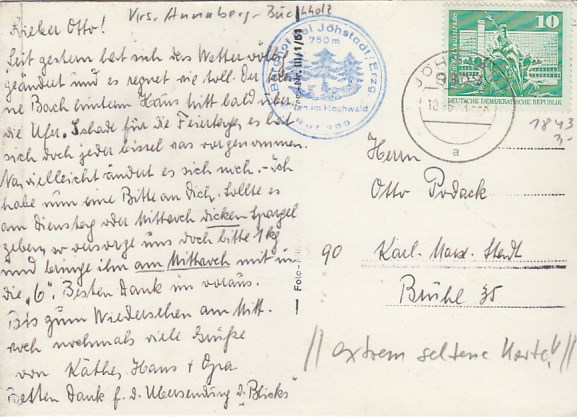 Krs. Annaberg-Buchholz
Lieber Otto!
Seit gestern hat sich das Wetter völlig
geändert und es regnet wie toll. Der
ne Bach hinterm Haus tritt bald über
die Ufer. Schade für die Feiertage, es hat
sich doch jeder bissel was vorgenommen.
Na, vielleicht ändert es sich noch. - Ich
habe nun eine Bitte an Dich. Sollte es
am Dienstag oder Mittwoch dicken Spargel
geben, so versorge uns doch bitte 1 kg
und bringe ihn am Mittwoch mit in
die "6". Besten Dank im voraus.
Bis zum Wiedersehen am Mitt.
noch nochmals viele Grüße
von Käthe, Hans + Opa
Besten Dank f. d. Übersendung d. "Blicks"
Berghof bei Jöhstadt, Erzg.
750 m
im Hochwald
III/1/51
Foto-
JÖHSTADT
a
10
DEUTSCHE DEMOKRATISCHE REPUBLIK
1843
3,-
Herrn
Otto Podack
90 Karl-Marx-Stadt
Brühl 35
//extrem seltene Karte!//